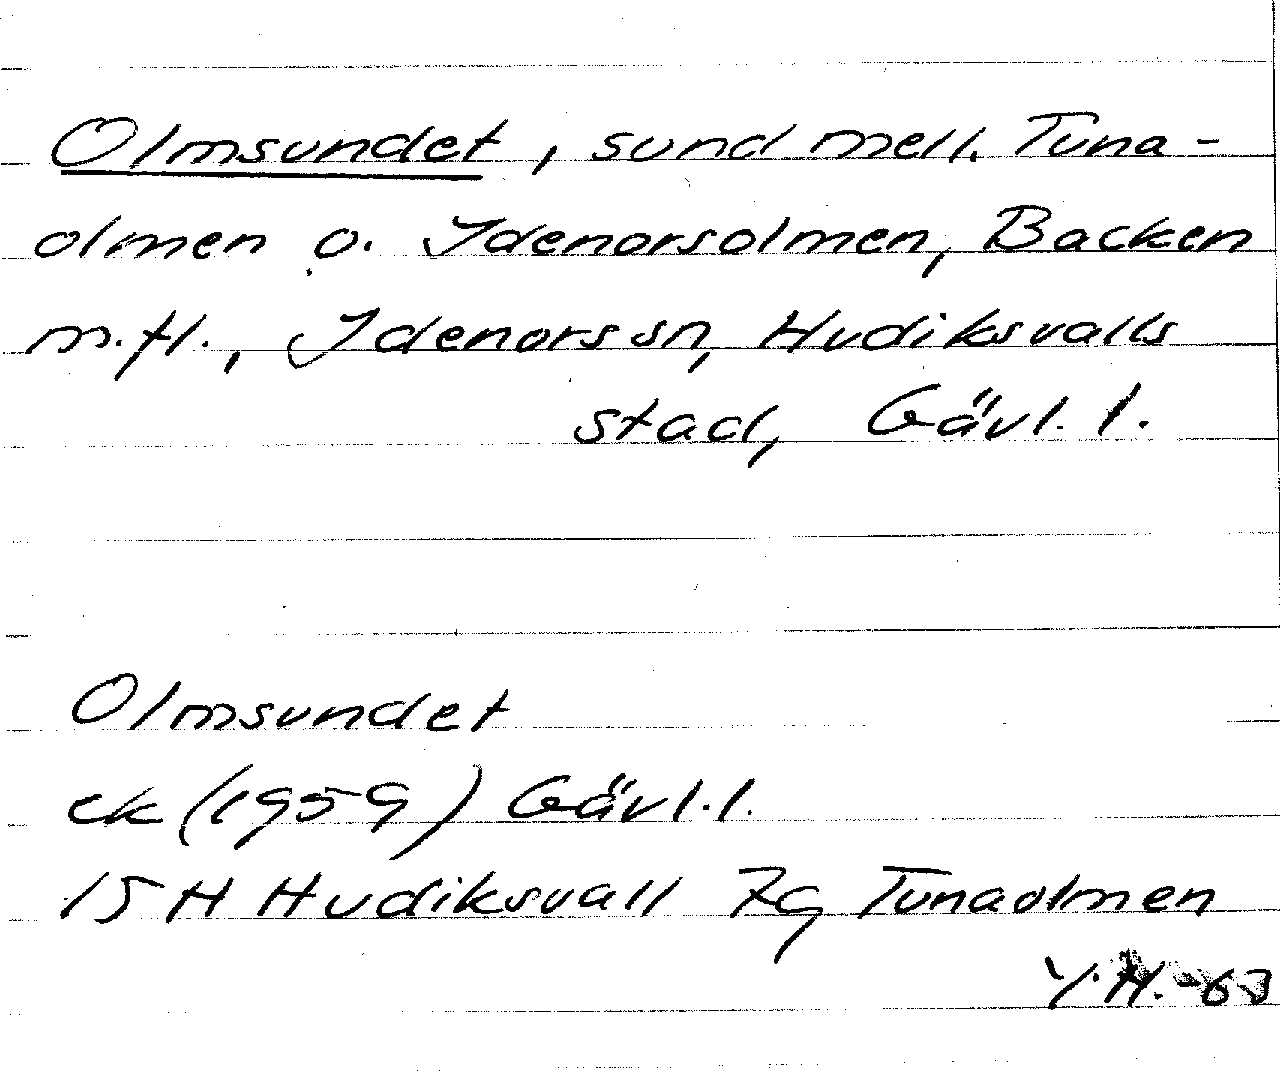 Olmsundet, sund mell. Tuna-
olmen o. Idenorsolmen, Backen
m.fl., Idenors sn, Hudiksvalls
stad, Gävl. l.
Olmsundet
ek (1959) Gävl. l.
15H Hudiksvall 7g Tunaolmen
Y.H. -63